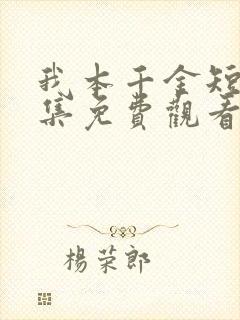 我本千金短
集免費觀看
楊荣郎